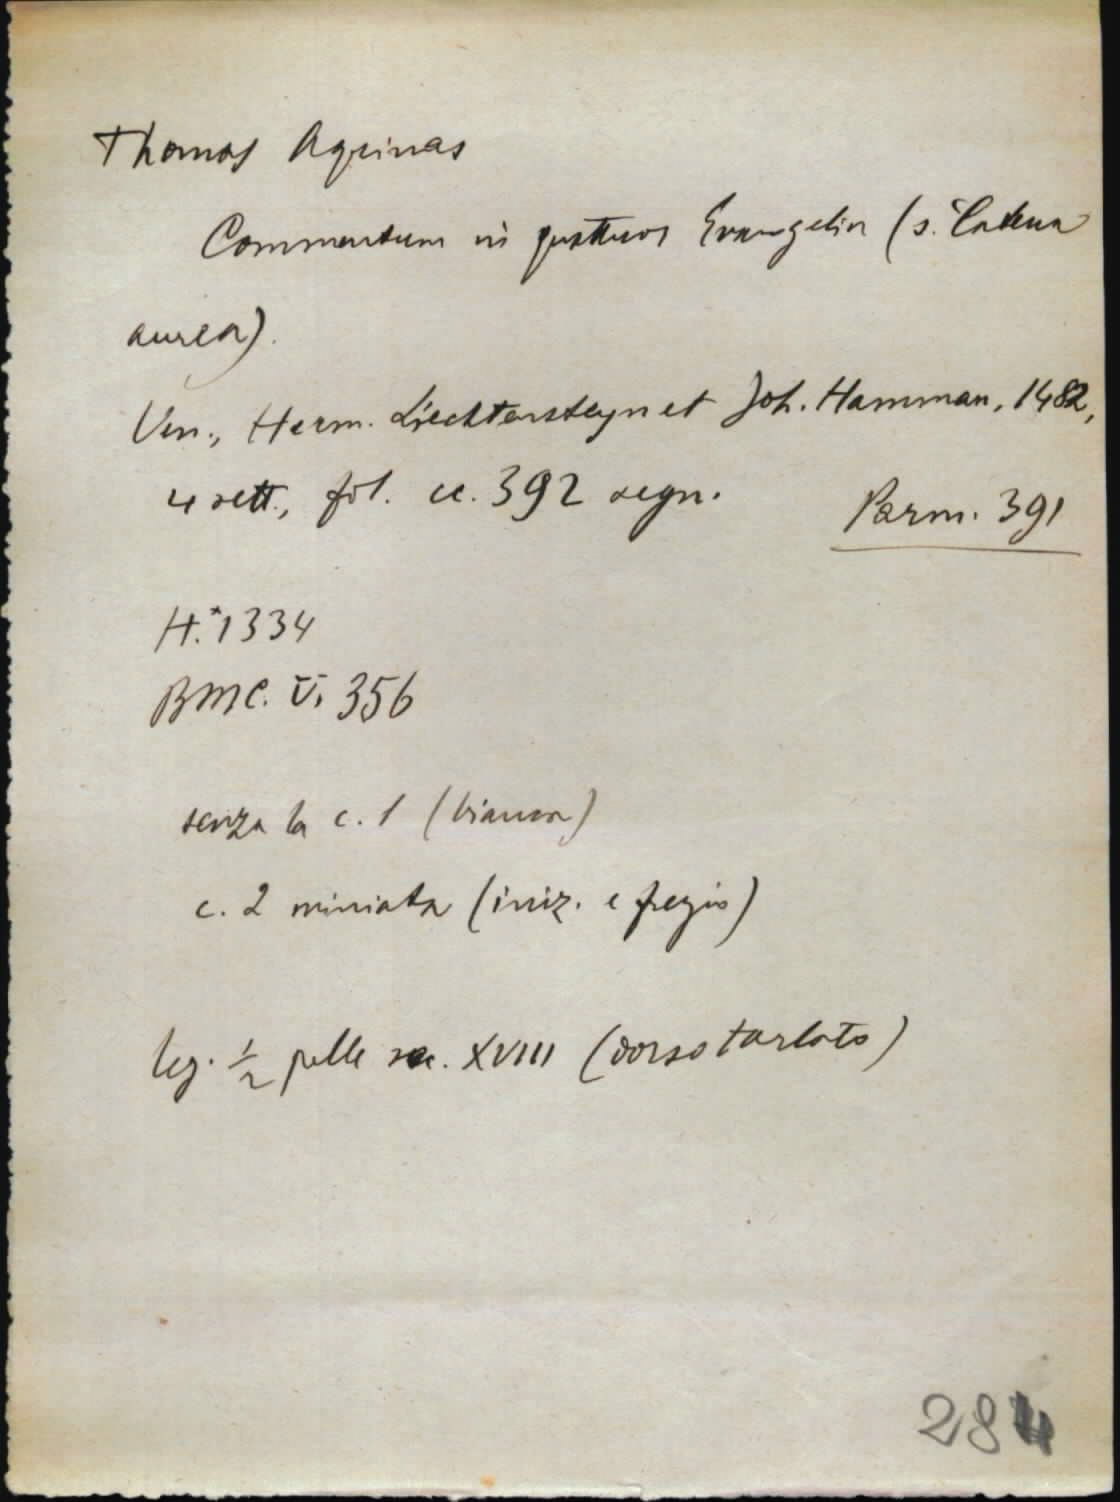 Thomas Aquinas
Commentum in quattuor Evangelia (s. Catena
aurea).
Ven., Herm. Liechtensteyn et Joh. Hamman, 1482,
4 sett., fol. cc. 392 segn.
Parm. 391
H.*1334
BMC. V, 356
senza la c. 1 (bianca)
c. 2 miniata (iniz. e fregio)
leg. 1/2 pelle sec. XVIII (dorso tarlato)
284